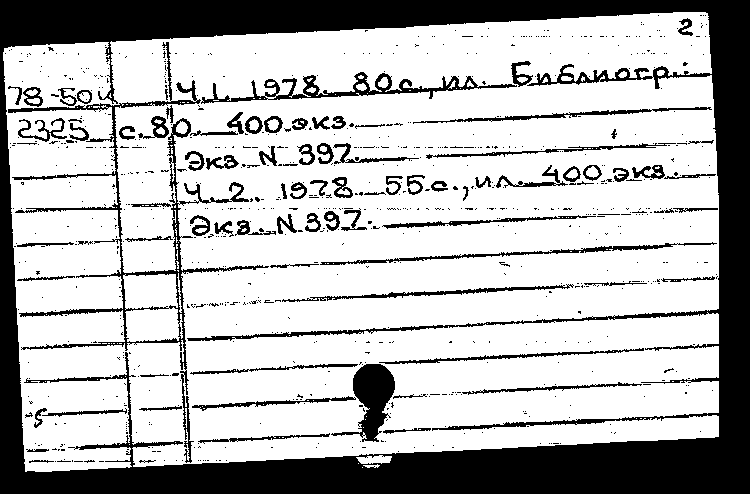 2
78-504 Ч.1. 1978. 80 с., ил. Библиогр.:
2325 с. 80. 400 экз.
Экз. N 397.
Ч. 2. 1978. 55 с., ил. 400 экз.
Экз. N 397.